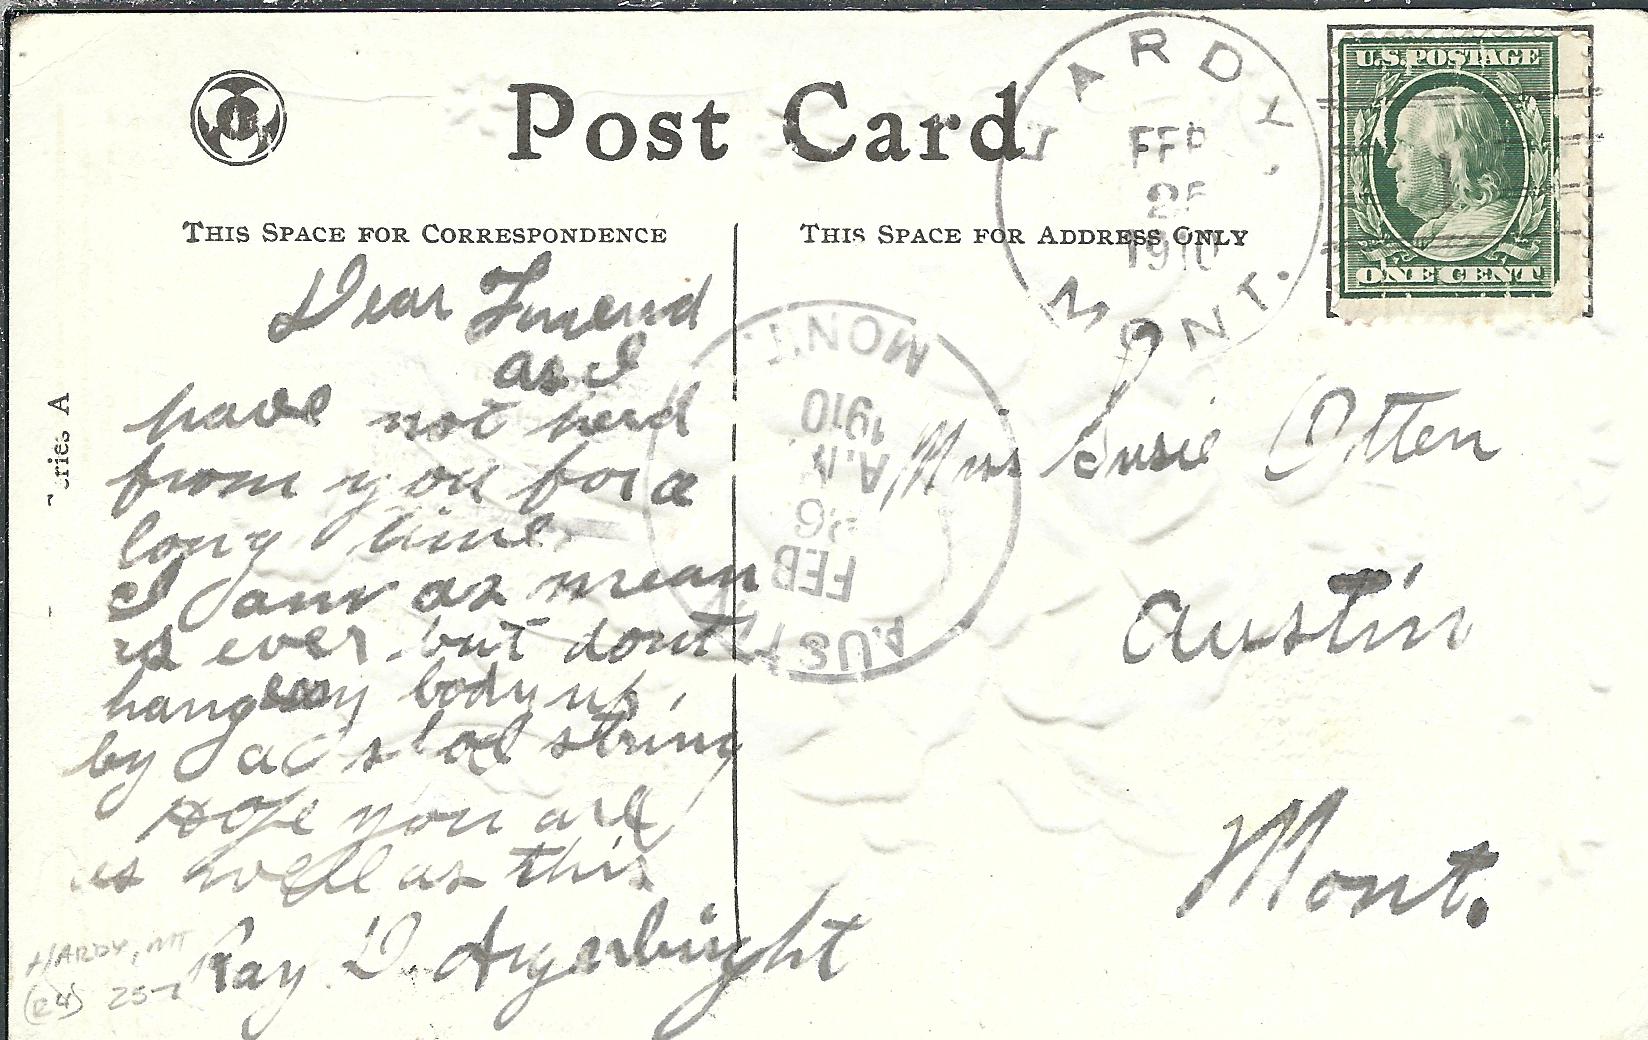 Post Card
THIS SPACE FOR CORRESPONDENCE
THIS SPACE FOR ADDRESS ONLY
HARDY,
FEB
25
1910
MONT.
U.S. POSTAGE
ONE CENT
MONT.
1910
A.M
26
FEB
AUSTIN
Series A
Dear Friend
as I
have not herd
from you for a
long time.
I am as mean
as ever but dont
hang any body up
by a shoe string
Hope you are
as well as this
Ray D.
Miss Susie Otten
Austin
Mont.
HARDY, MT
(R4) 25-